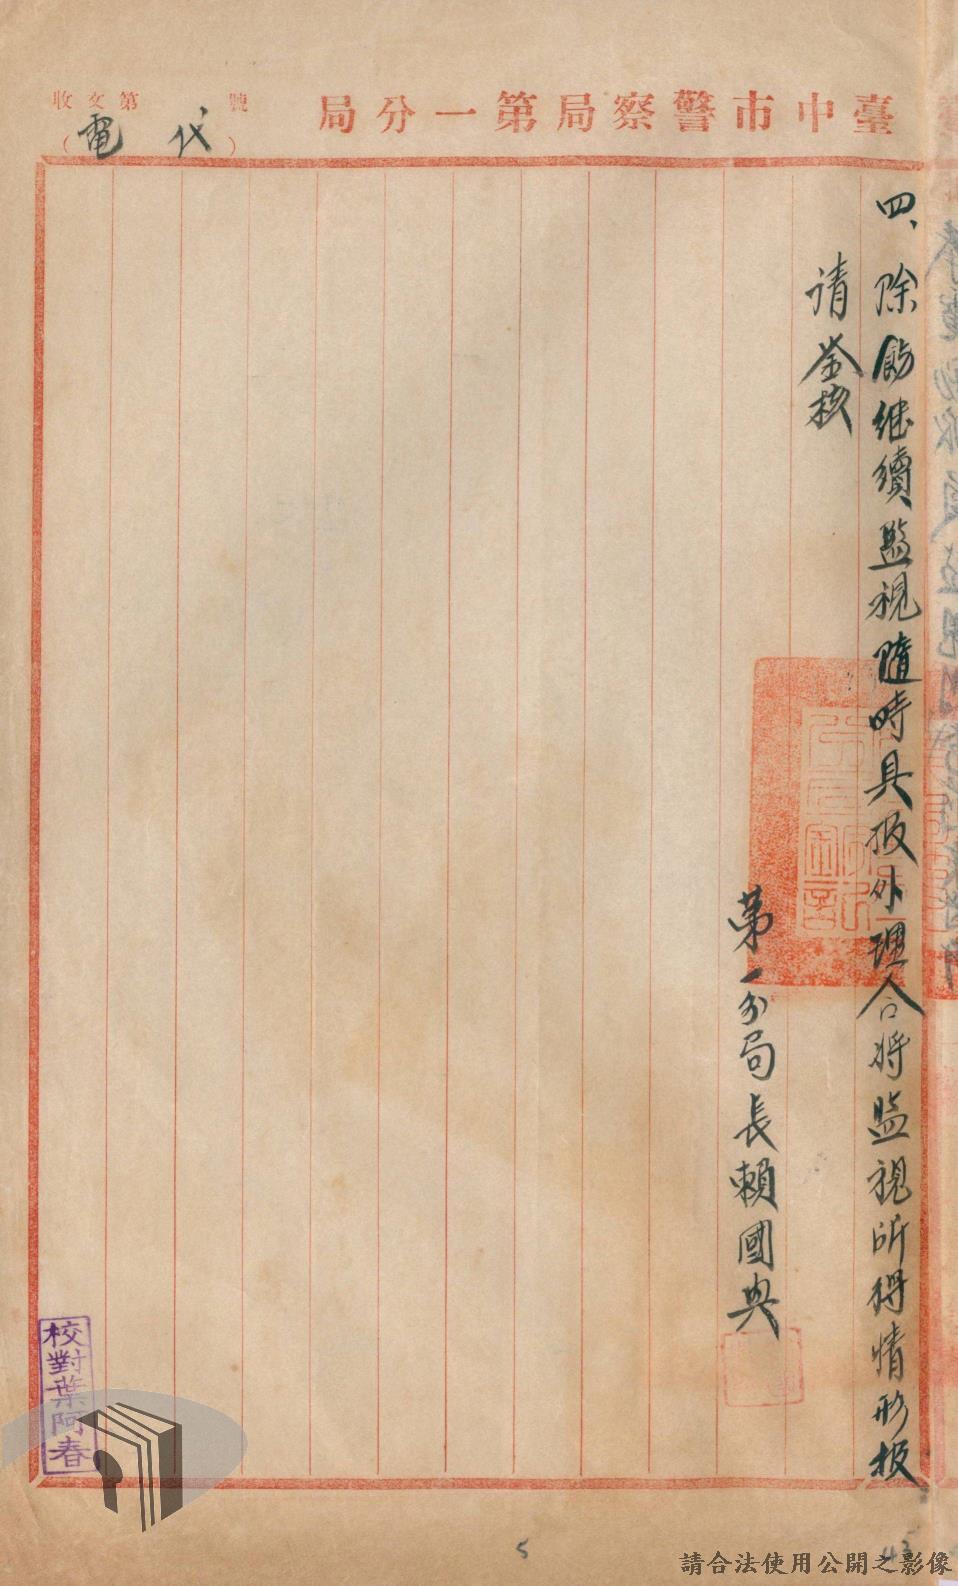 臺中市警察局第一分局
收文第　號
（代電）
四、除飭继續監視隨時具报外理合将监視所得情形报
请鉴核
第一分局長賴國典
校對葉阿春
5
43
請合法使用公開之影像